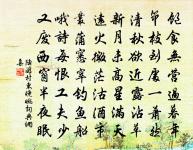 飽食無營過暮年
笻枝到處一蕭然
清秋欲近露沾草
新月未高星滿天
遠火微茫沽酒市
叢蒲窸窣釣魚船
哦詩每恨工夫少
又廢西窗半夜眠
陸游村東晚眺詞典網
集